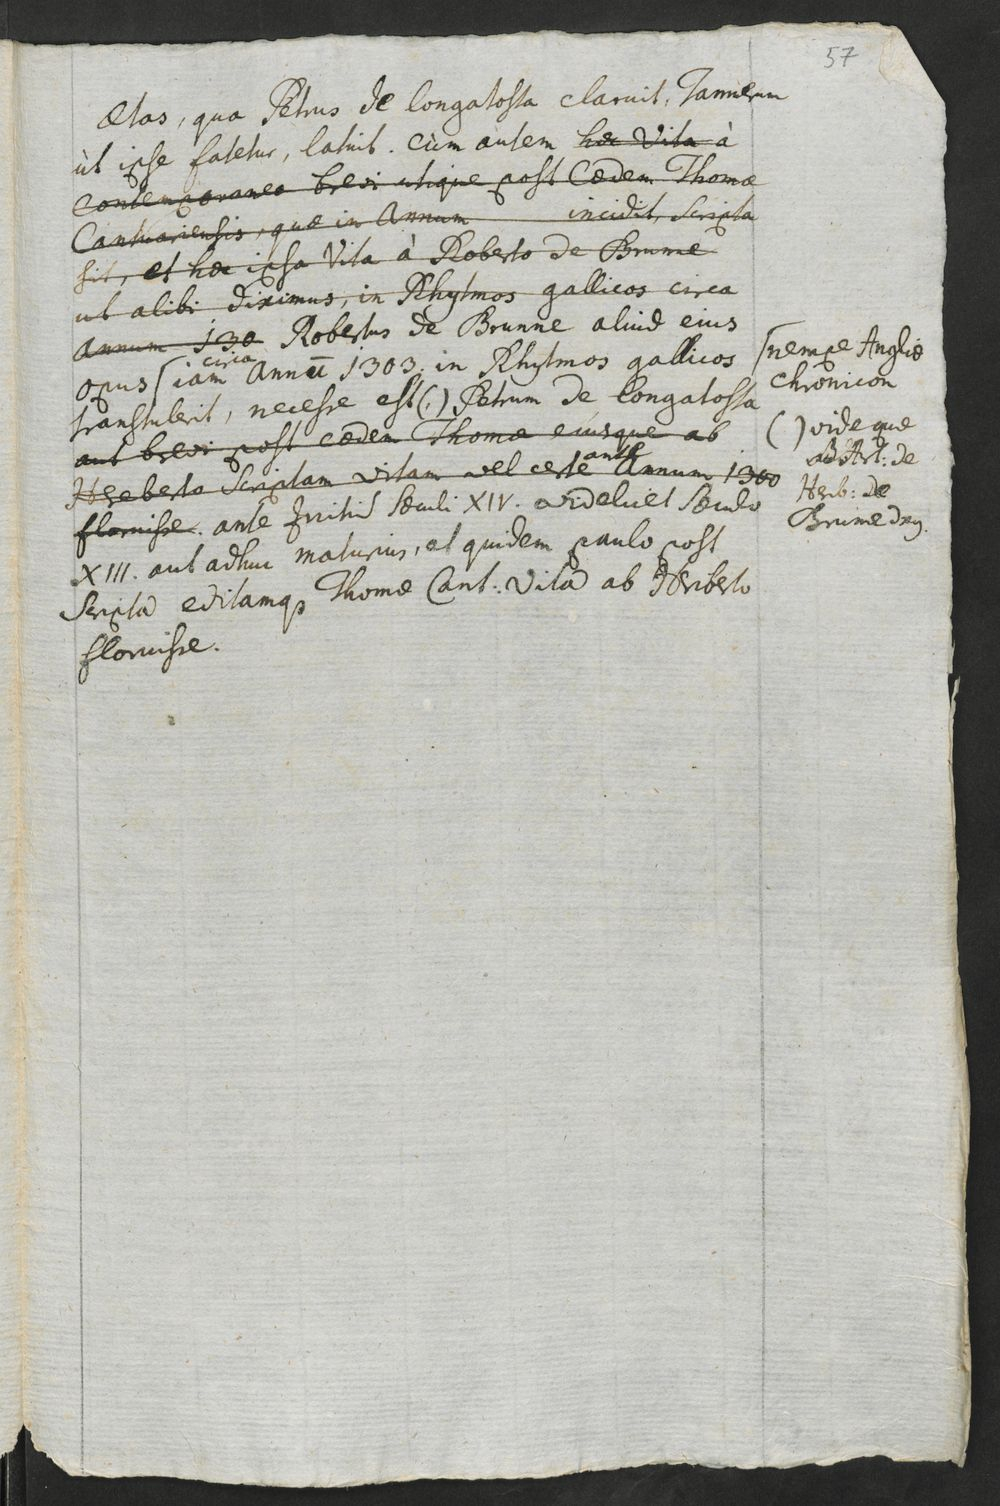 57
Ætas, qua Petrus de Longatosta claruit, Tannerum
ùt ipse fatetur, latuit. Cùm autem hæc Vita à
contemporaneo brevi utique post Cædem Thomæ
Cantuariensis, quæ in Annum incidit, scripta
sit, et hæc ipsa Vita à Roberto de Brunne
ut alibi diximus, in Rhytmos gallicos circa
annum 130 Robertus de Brunne aliud eius
opus ⌠ iam circa Annū 1303. in Rhytmos gallicos
transtulerit, necesse est (.) Petrum de Longatosta
aut brevi post cædem Thomæ eiusque ab
Hereberto Scriptam vitam vel certe ante Annum 1300
floruisse. ante initiū Sæculi XIV. videlicet Sæculo
XIII. aut adhuc maturius, et quidem paulo post
Scriptā editamqȝ Thomæ Cant: Vitā ab Heriberto
floruisse.
⌠ nempe Angliæ
Chronicon
( ) vide quæ
ad Art: de
Herb: de
Brunne dxj.